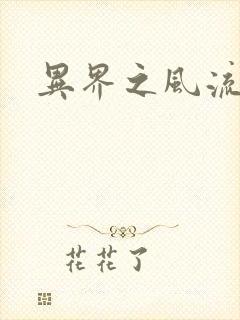 異界之風流
花花了